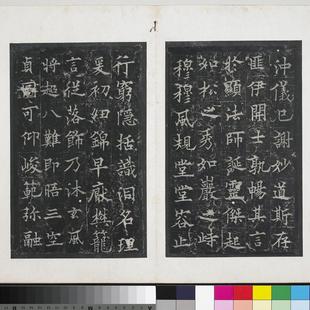 沖儀已謝妙道斯存
匪伊開士孰暢其言
於顯法師誕靈傑起
如松之秀如巖之峙
穆穆風規堂堂容止
行窮隱括識洞名理
爰初細錦早厭樊籠
言從落飾乃沐玄風
將超八難即晤三空
貞 可仰峻範弥融